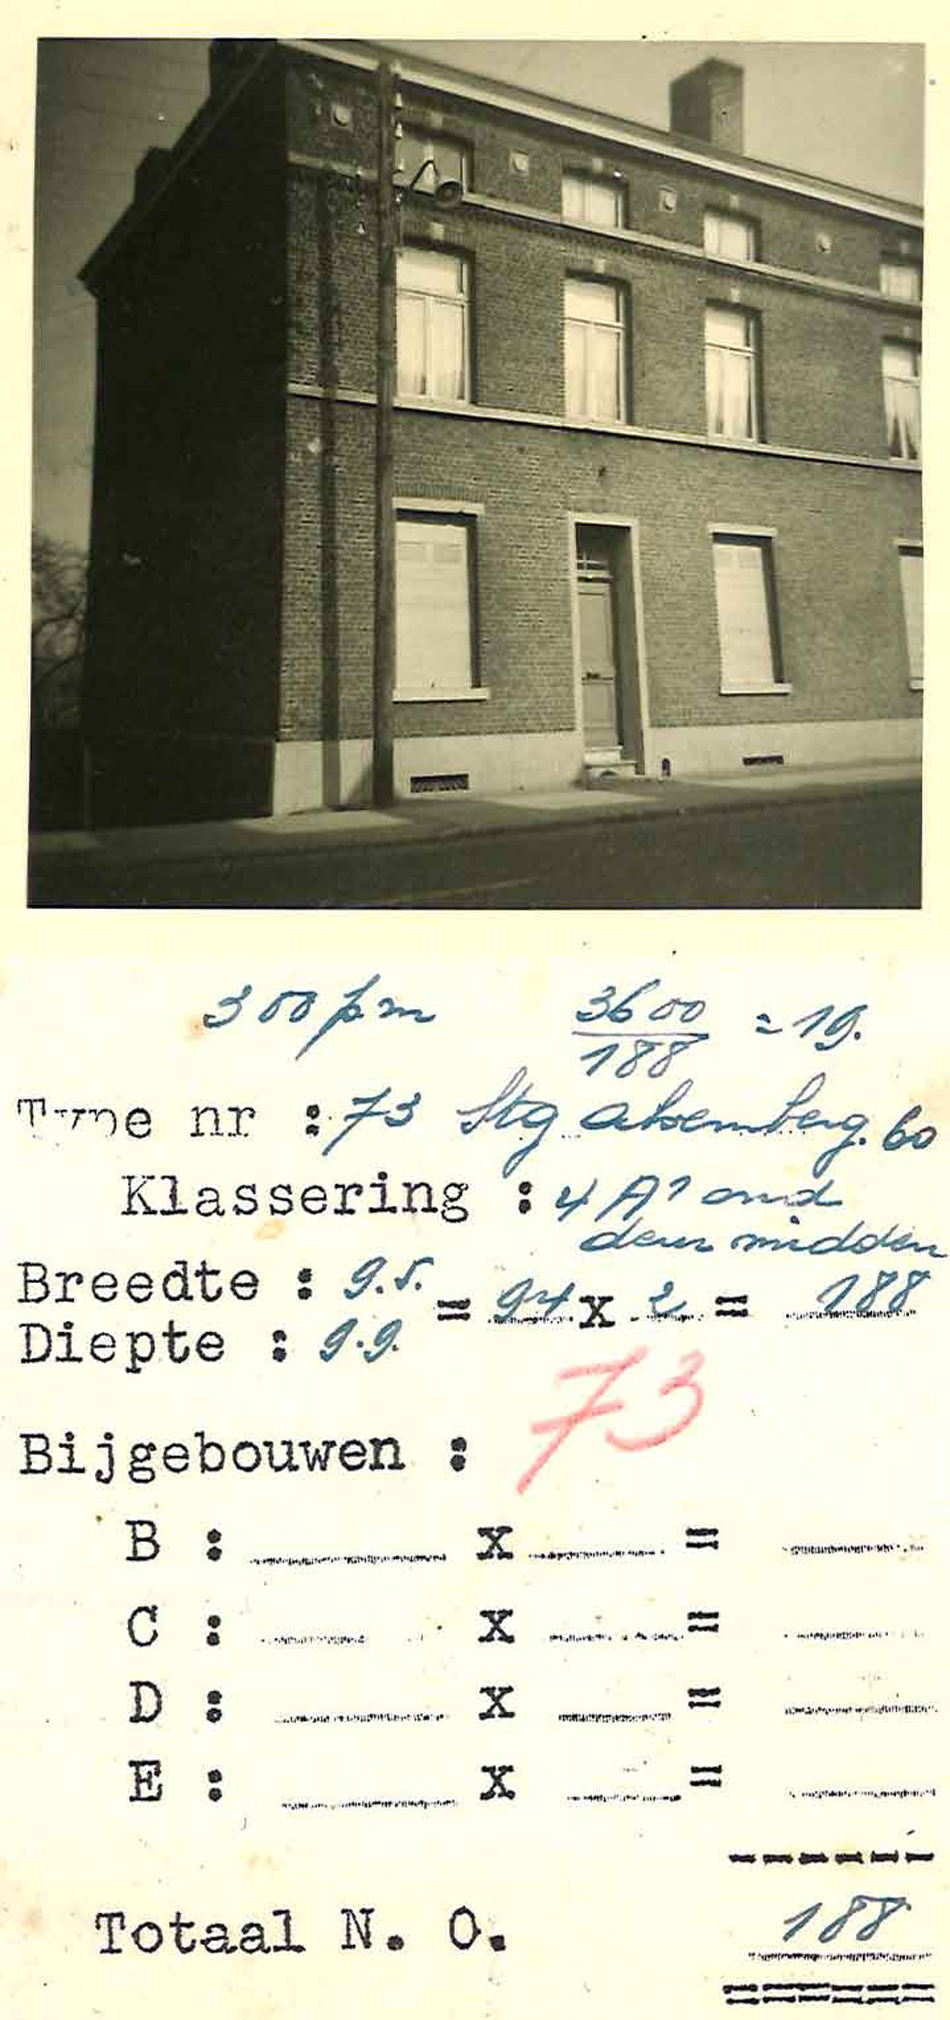 300 pm 3600/188 = 19.
Type nr : 73 Stg alsemberg. 60
Klassering : 4 A? oud
deur midden
Breedte : 9.5. = 94 x 2 = 188
Diepte : 9.9.
73
Bijgebouwen :
B : x =
C : x =
D : x =
E : x =
Totaal N. O. 188